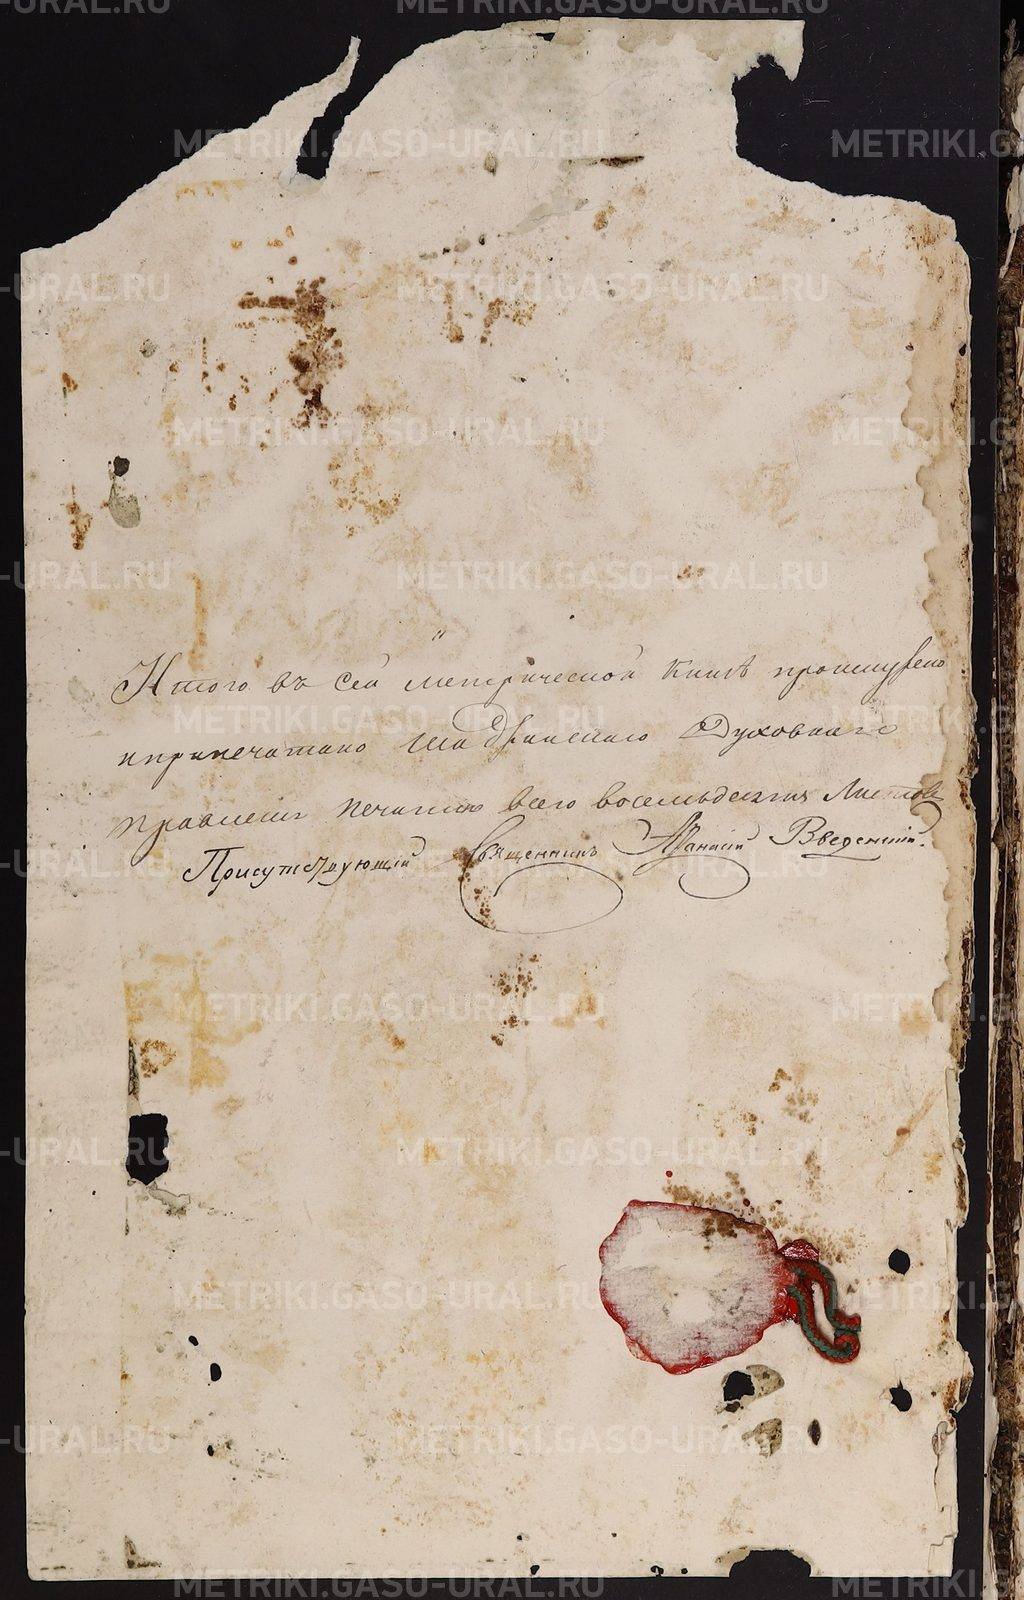 Итого въ сей метрической книгѣ прошнурено
и припечатано Шадринскаго Духовнаго
правленія печатью всего восемьдесятъ Листовъ
Присутствующій Священникъ Афанасій Введенскій.
METRIKI.GASO-URAL.RU